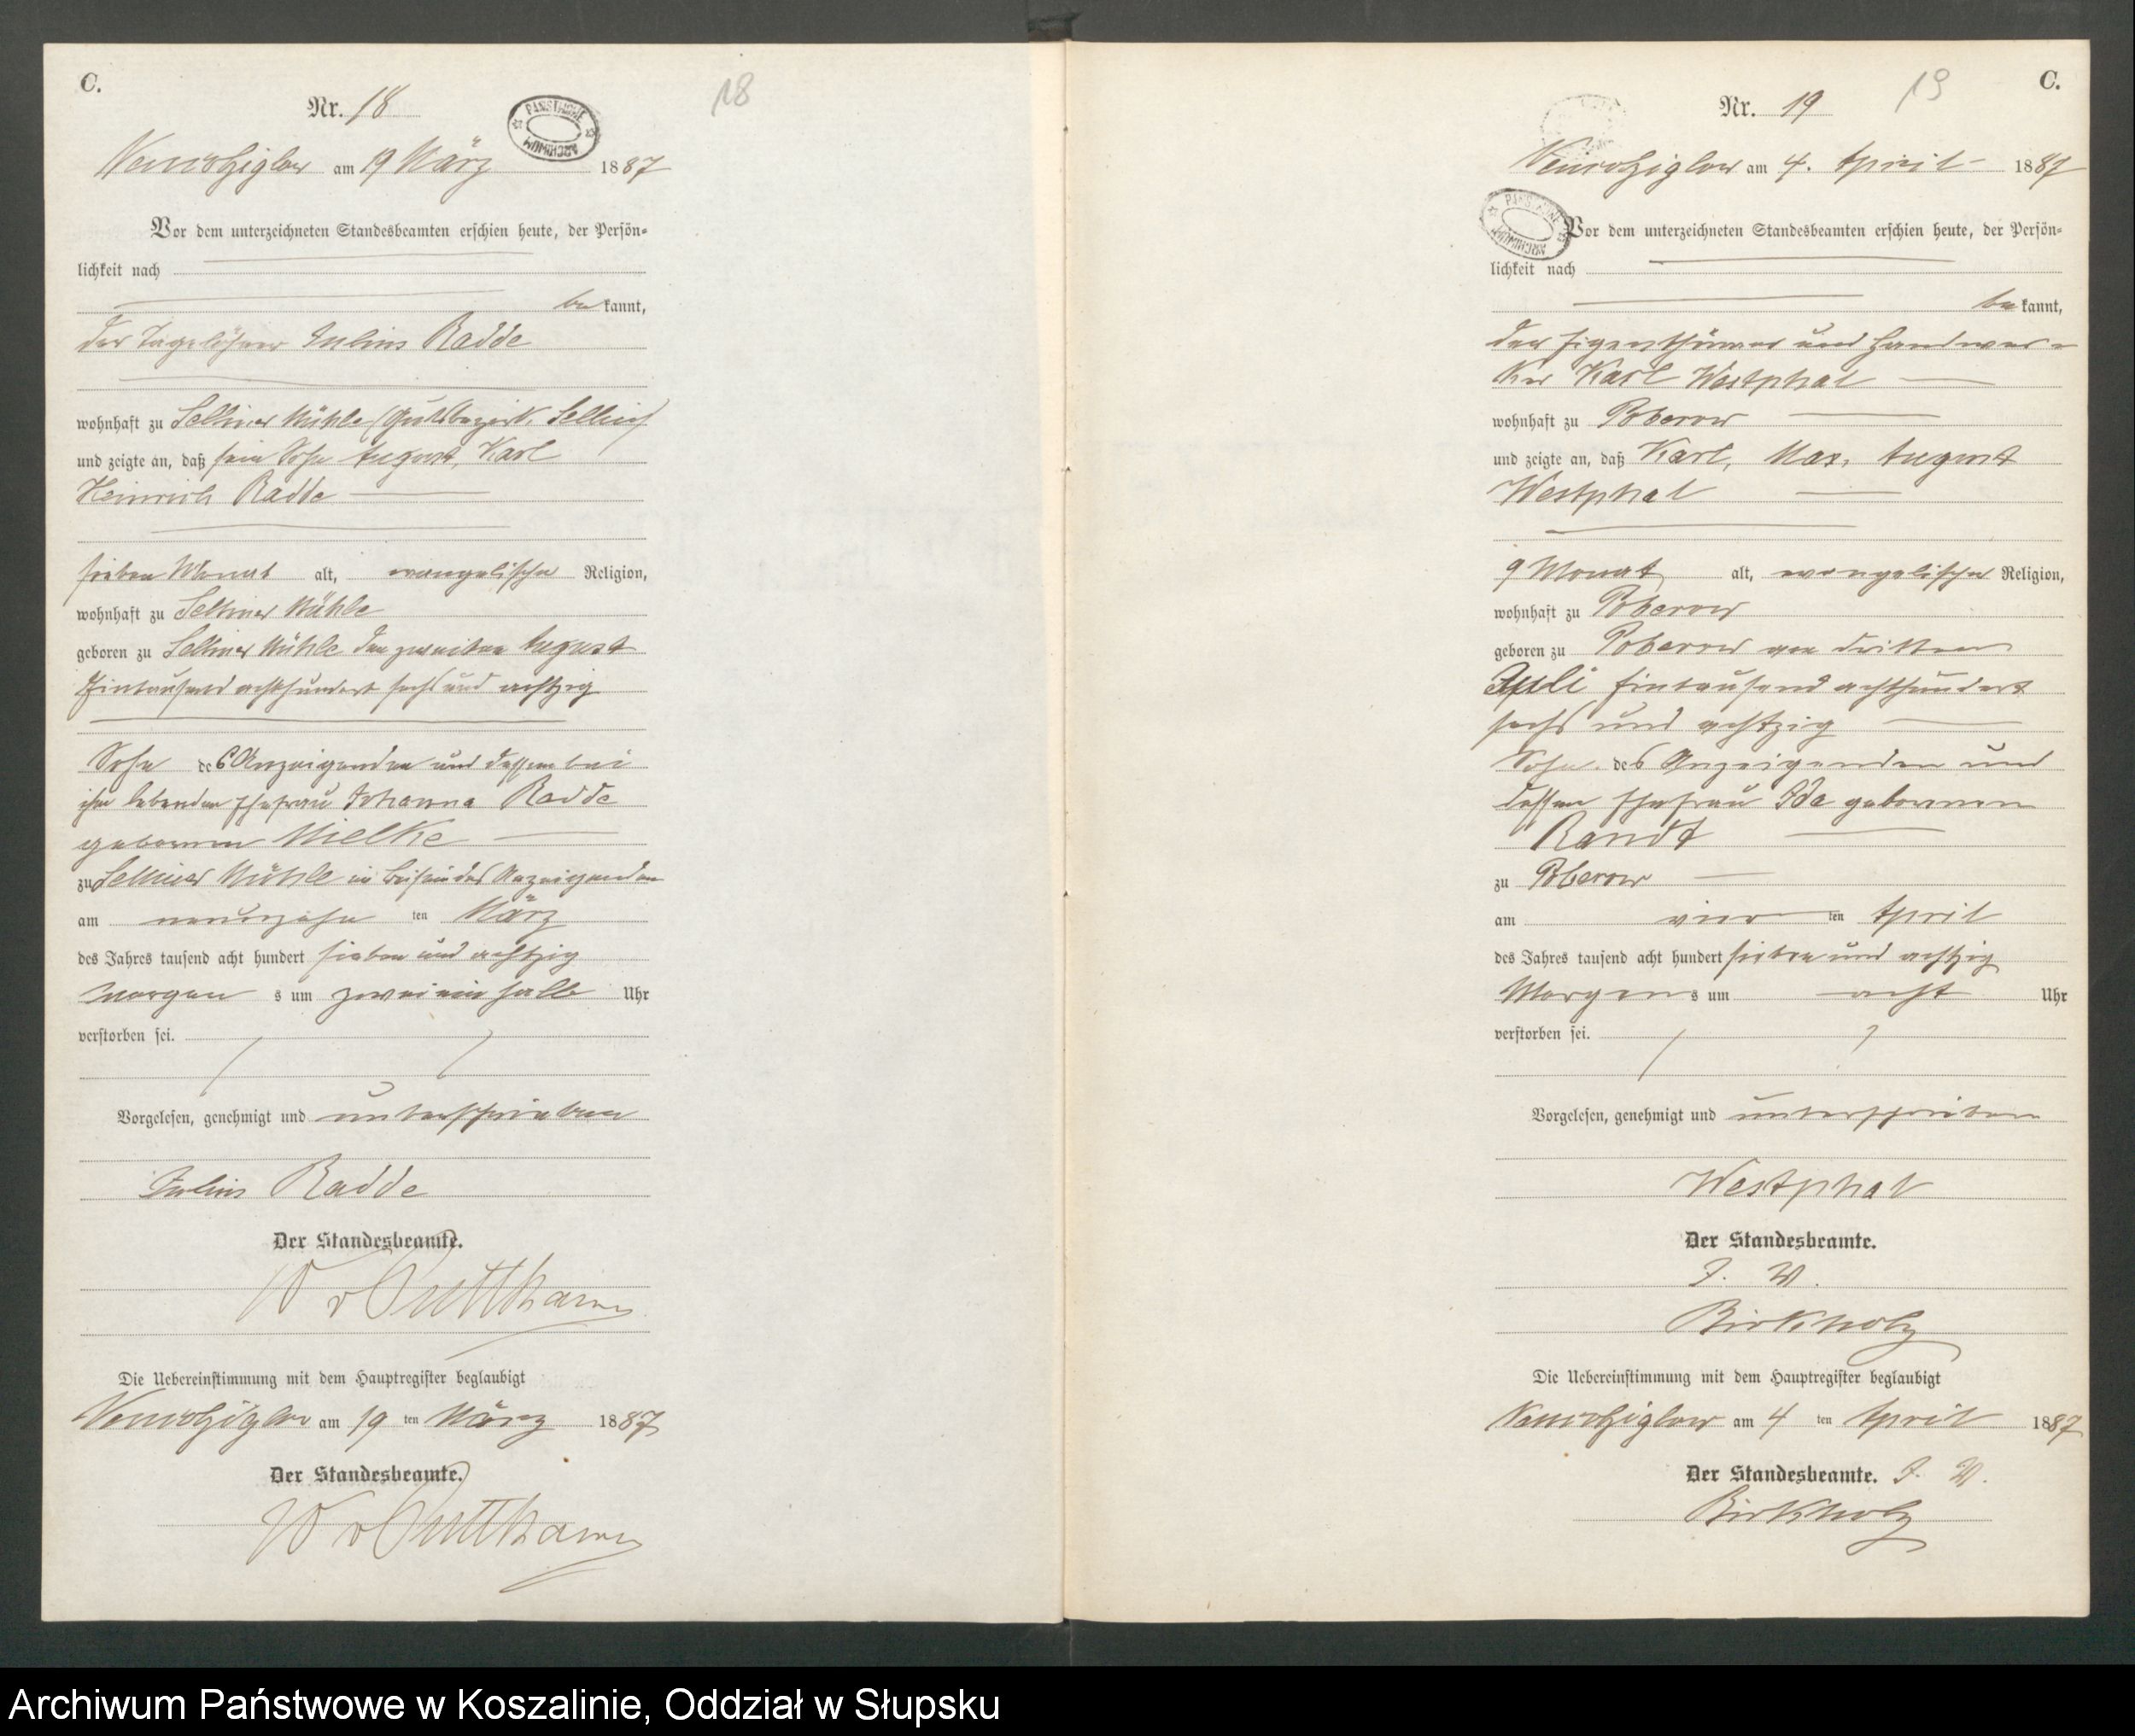 C.
Nr. 18
18
PAŃSTWOWE
ARCHIWUM
am 19 März 1887
Vor dem unterzeichneten Standesbeamten erschien heute, der Persön-
lichkeit nach
be kannt,
der Tagelöhner Julius Radde
wohnhaft zu Selliner Mühle (Gutsbezirk Sellin)
und zeigte an, daß sein Sohn August, Karl
Heinrich Radde
sieben Monat alt, evangelischer Religion,
wohnhaft zu Selliner Mühle
geboren zu Selliner Mühle den zweiten August
Eintausend achthundert sechs und achtzig
Sohn des Anzeigenden und dessen bei
ihm lebenden Ehefrau Johanna Radde
geborenen Mielke
zu Selliner Mühle in Beisein des Anzeigenden
am neunzehn ten März
des Jahres tausend acht hundert sieben und achtzig
Morgen s um zwei ein halb Uhr
verstorben sei.
Vorgelesen, genehmigt und unterschrieben
Julius Radde
Der Standesbeamte.
W v Puttkamer
Die Uebereinstimmung mit dem Hauptregister beglaubigt
am 19 ten März 1887
Der Standesbeamte.
W v Puttkamer
C.
Nr. 19
19
PAŃSTWOWE
ARCHIWUM
am 4. April 1887
Vor dem unterzeichneten Standesbeamten erschien heute, der Persön-
lichkeit nach
be kannt,
der Eigenthümer und Handwer-
ker Karl Westphal
wohnhaft zu Poberow
und zeigte an, daß Karl, Max, August
Westphal
9 Monat alt, evangelischer Religion,
wohnhaft zu Poberow
geboren zu Poberow am dritten
Juli Eintausend achthundert
sechs und achtzig
Sohn des Anzeigenden und
dessen Ehefrau Ida geborenen
Randt
zu Poberow
am vier ten April
des Jahres tausend acht hundert sieben und achtzig
Morgen s um acht Uhr
verstorben sei.
Vorgelesen, genehmigt und unterschrieben
Westphal
Der Standesbeamte.
J. V.
Birkholz
Die Uebereinstimmung mit dem Hauptregister beglaubigt
am 4 ten April 1887
Der Standesbeamte. J. V.
Birkholz
Archiwum Państwowe w Koszalinie, Oddział w Słupsku